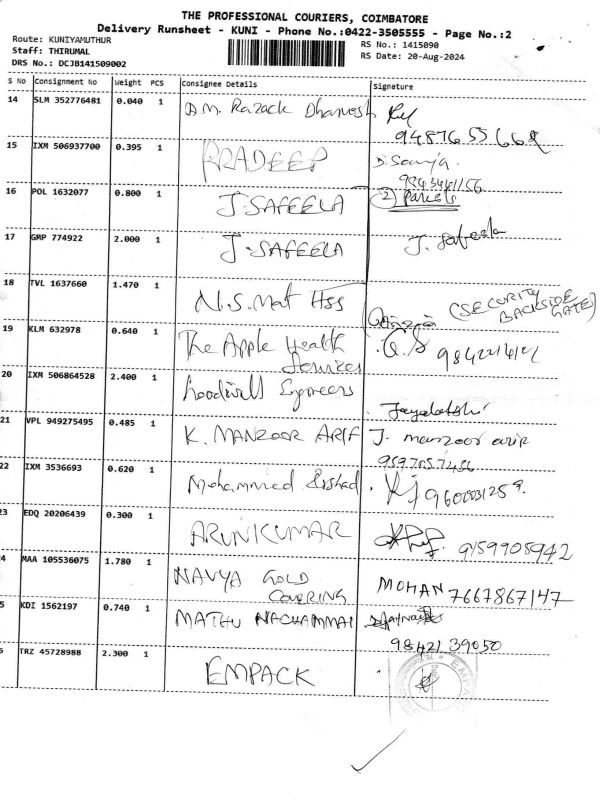 THE PROFESSIONAL COURIERS, COIMBATORE
Delivery Runsheet - KUNI - Phone No.:0422-3505555 - Page No.:2
Route: KUNIYAMUTHUR
Staff: THIRUMAL
DRS No.: DCJB141509002
RS No.: 1415090
RS Date: 20-Aug-2024
S No Consignment No Weight PCS Consignee Details Signature
14 SLM 352776481 0.040 1 A.M. Razack
15 IXM 506937700 0.395 1 PRADEEP D. Sowja.
16 POL 1632077 0.800 1 J. SAFEELA 2) Parcels
17 GMP 774922 2.000 1 J. SAFEELA J. Safeela
18 TVL 1637660 1.470 1 N.S. Mat Hss (SECURITY BACKSIDE GATE)
19 KLM 632978 0.640 1 The Apple Health Services
20 IXM 506864528 2.400 1 Goodwill Engineers
21 VPL 949275495 0.485 1 K. MANZOOR ARIF J. manzoor arif
22 IXM 3536693 0.620 1 Mohammed Irshad
23 EDQ 20206439 0.300 1 ARUNKUMAR 9159905942
24 MAA 105536075 1.780 1 NAVYA GOLD COVERING MOHAN 7667867147
5 KDI 1562197 0.740 1 MATHU NACHAMMAI
98421 39050
TRZ 45728988 2.300 1 EMPACK